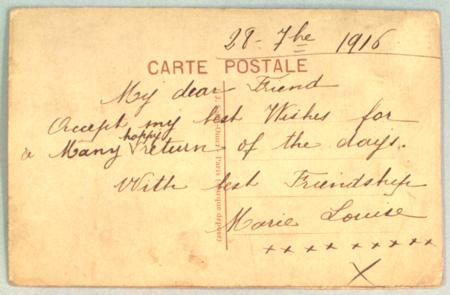 28 - 7bre 1916
CARTE POSTALE
My dear Friend
Accept my best Wishes for
a Many happy return of the days.
With best Friendship
Marie Louise
x x x x x x x x x
X
Paris (Marque déposée)